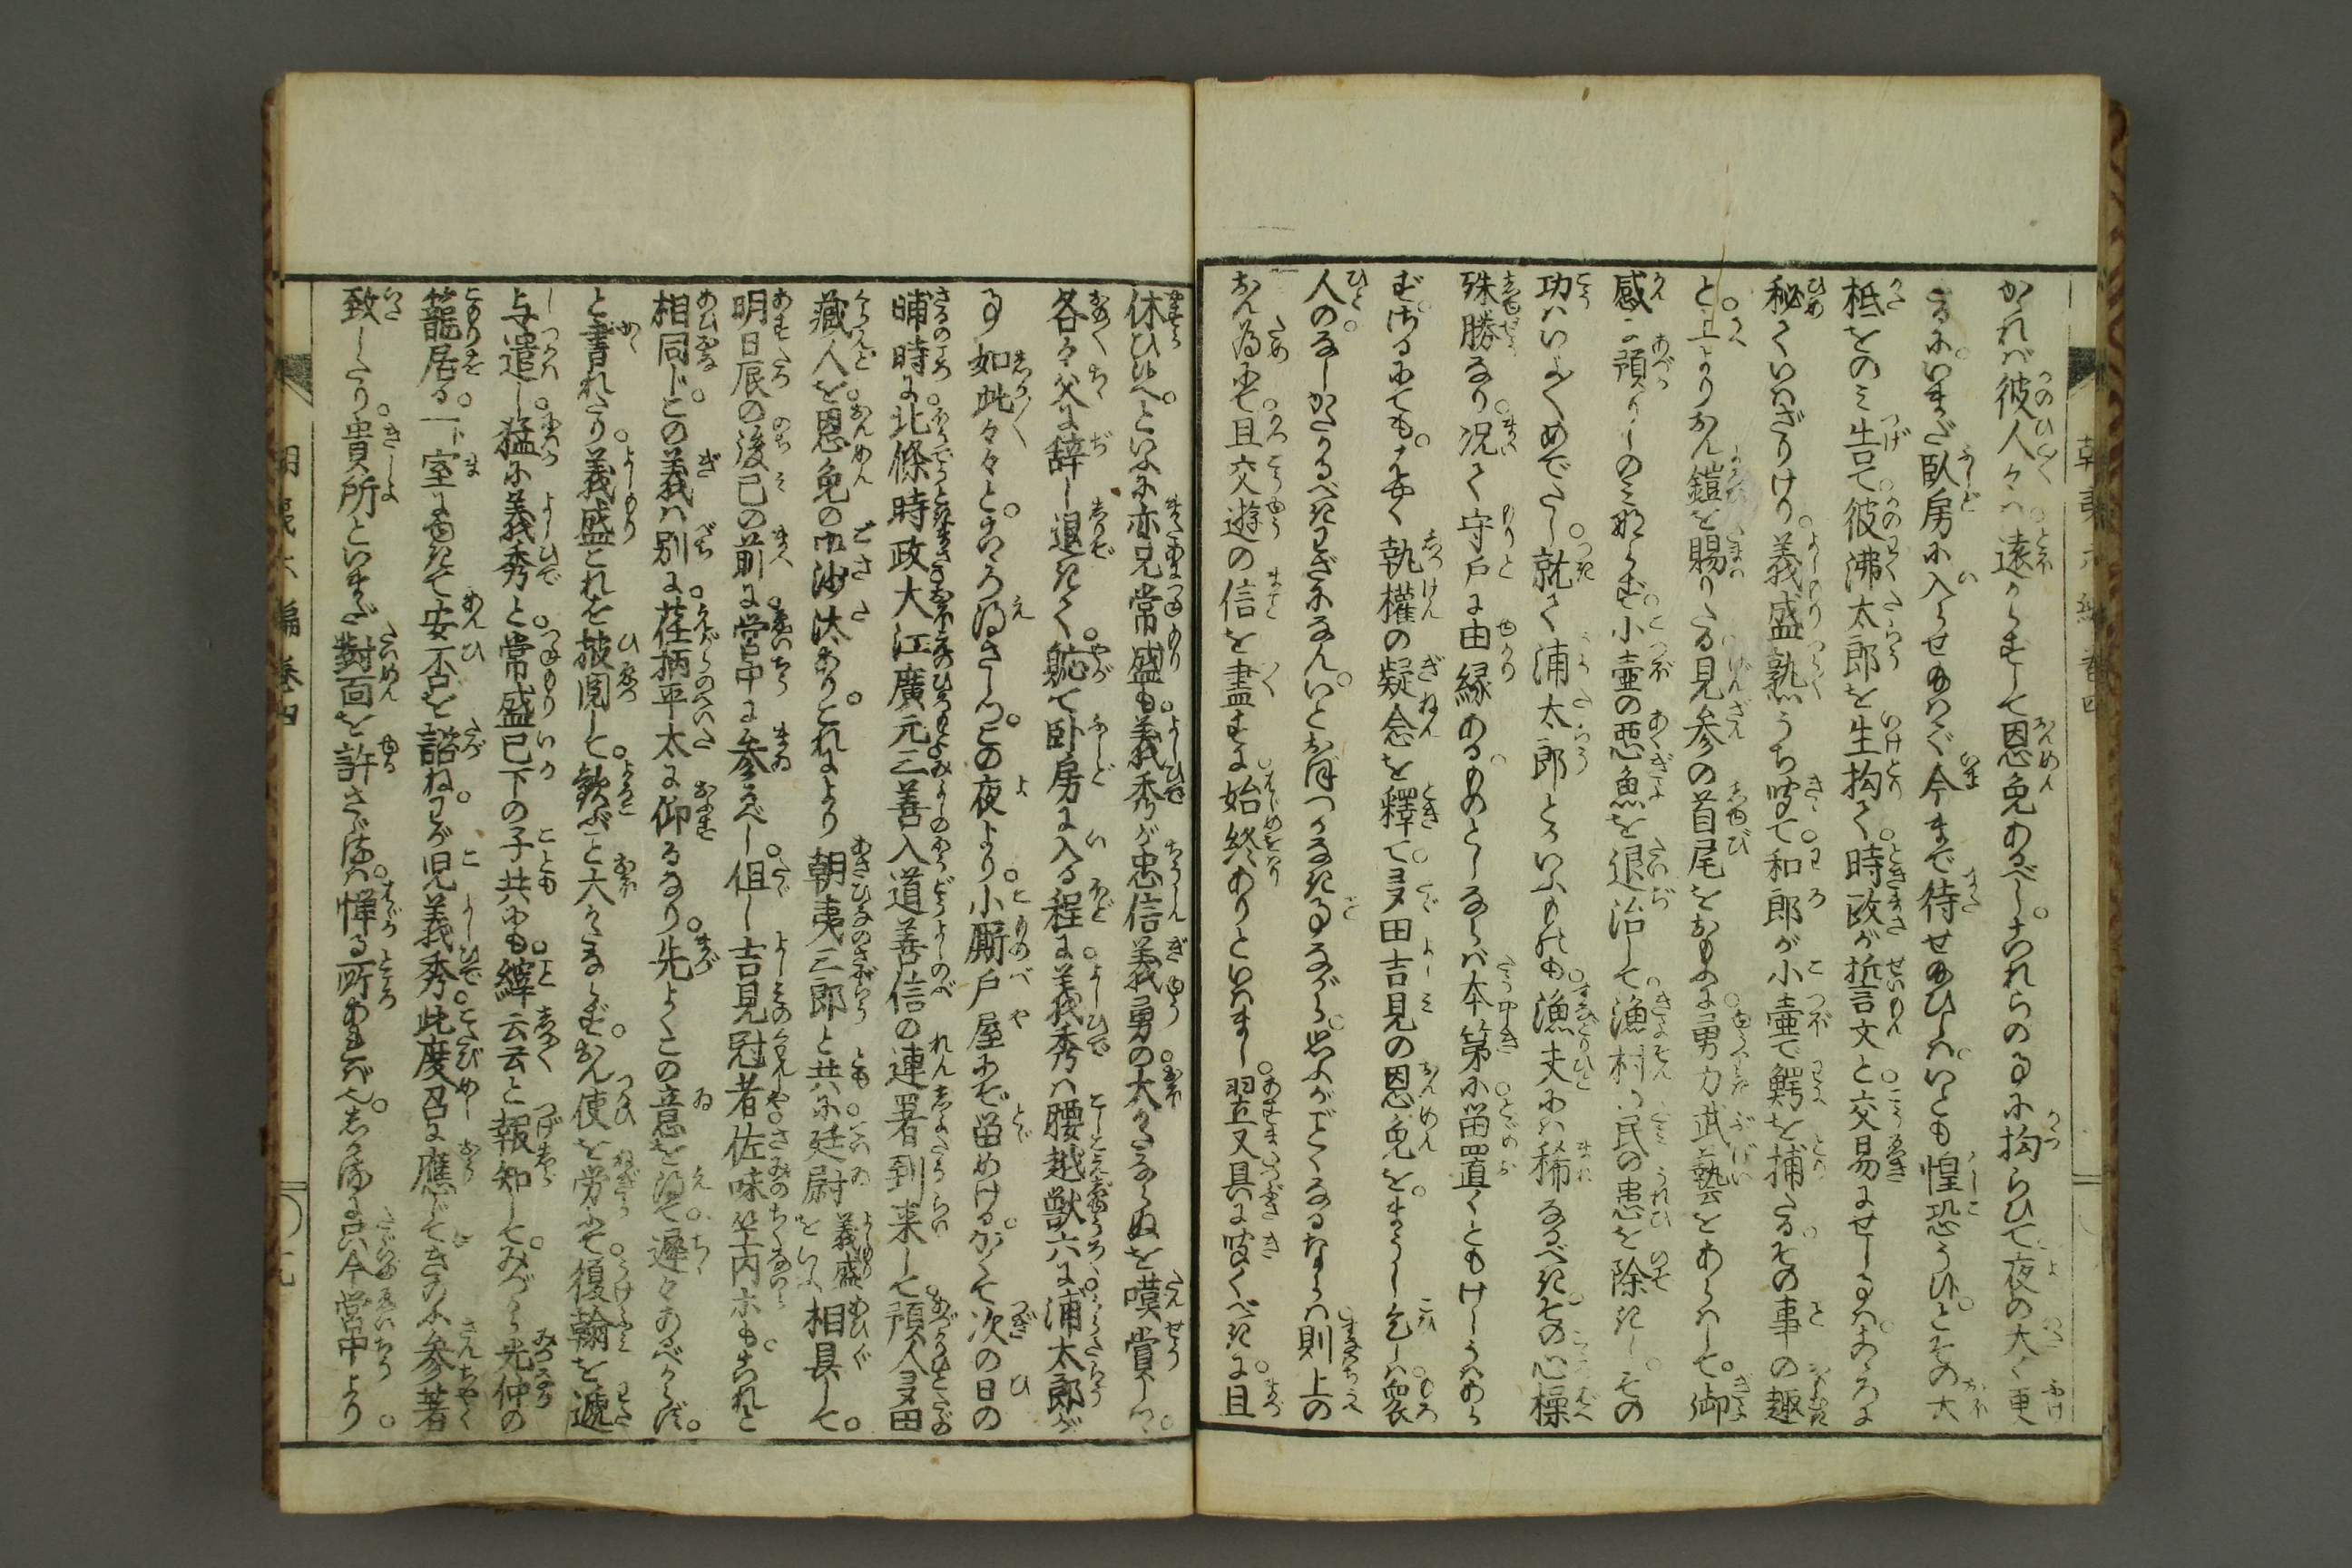 かれバ彼人々ハ。遠からずして恩免あるべし。これらの事に拘らひて夜の大く更
るに。いまだ臥房に入らせ給ハで今まで待せ給ひしハ。いとも惶恐うひ。とその大
柢をのミ告て。彼沸太郎を生拘て。時政が誓言文と。交易にせしるハ。
秘ていハざりけり。義盛熟うち聞て。和郎が小壷で鰐を捕たる。その事の趣
と。上よりおん鎧を賜りたる見参の首尾をおもふに。勇力武藝をあらハして。御
感に預りしのミならず。小壷の悪魚を退治して。漁村の民の患を除きし。その
功ハいよ〳〵めでたし。就て浦太郎とかいふものも。漁夫にハ稀なるべき。その心操
殊勝なり。况て守戸に由縁あるものとしならバ本第に留置くともけしうハあら
ず。さるにても。執權の疑念を釋て。ヌ田吉見の恩免を。まうし乞しハ。衆
人のなしがたかるべきわざになん。いとおぼつかなき事ながら。思ふがごとくなるならハ則上の
おん為にて。且交遊の信を盡すに。始終ありといハまし。翌又具に聞くべきに。且
休ひ候へ。といふに亦兄常盛も。義秀が忠信義勇の大かたならぬを嘆賞しつ。
各々父に辞し退きて。軈て卧房に入る程に。義秀ハ腰越獣六に。浦太郎が
事如此々々と。こゝろ得さしつ。この夜より。小厮戸屋にぞ留めける。かくて次の日の
晡時に。北條時政大江廣元三善入道善信の連署到来して。預人ヌ田
藏人を。恩免の御沙汰あり。これにより朝夷三郎と共に。廷尉義盛をいふ相具して。
明日辰の後巳の前に。営中に参るべし。但し吉見冠者。佐味竺内ホも。これと
相同じ。この義ハ別に。荏柄平太に仰るなり。先よくこの意を得て。遅々あるべからず。
と書れたり。義盛これを披閲して。歓ぶこと大かたならず。おん使を労ふて。復翰を逓
与遣し。猛に義秀と。常盛已下の子共にも。縡云云と報知して。みづから光仲の
籠居る。一室に赴きて安否を諮ね。わが児義秀。此度召に應じてきのふ参著
致したり。貴所といまだ對面を許さゞるハ。憚る所あれバ也。しかるに只今営中より。